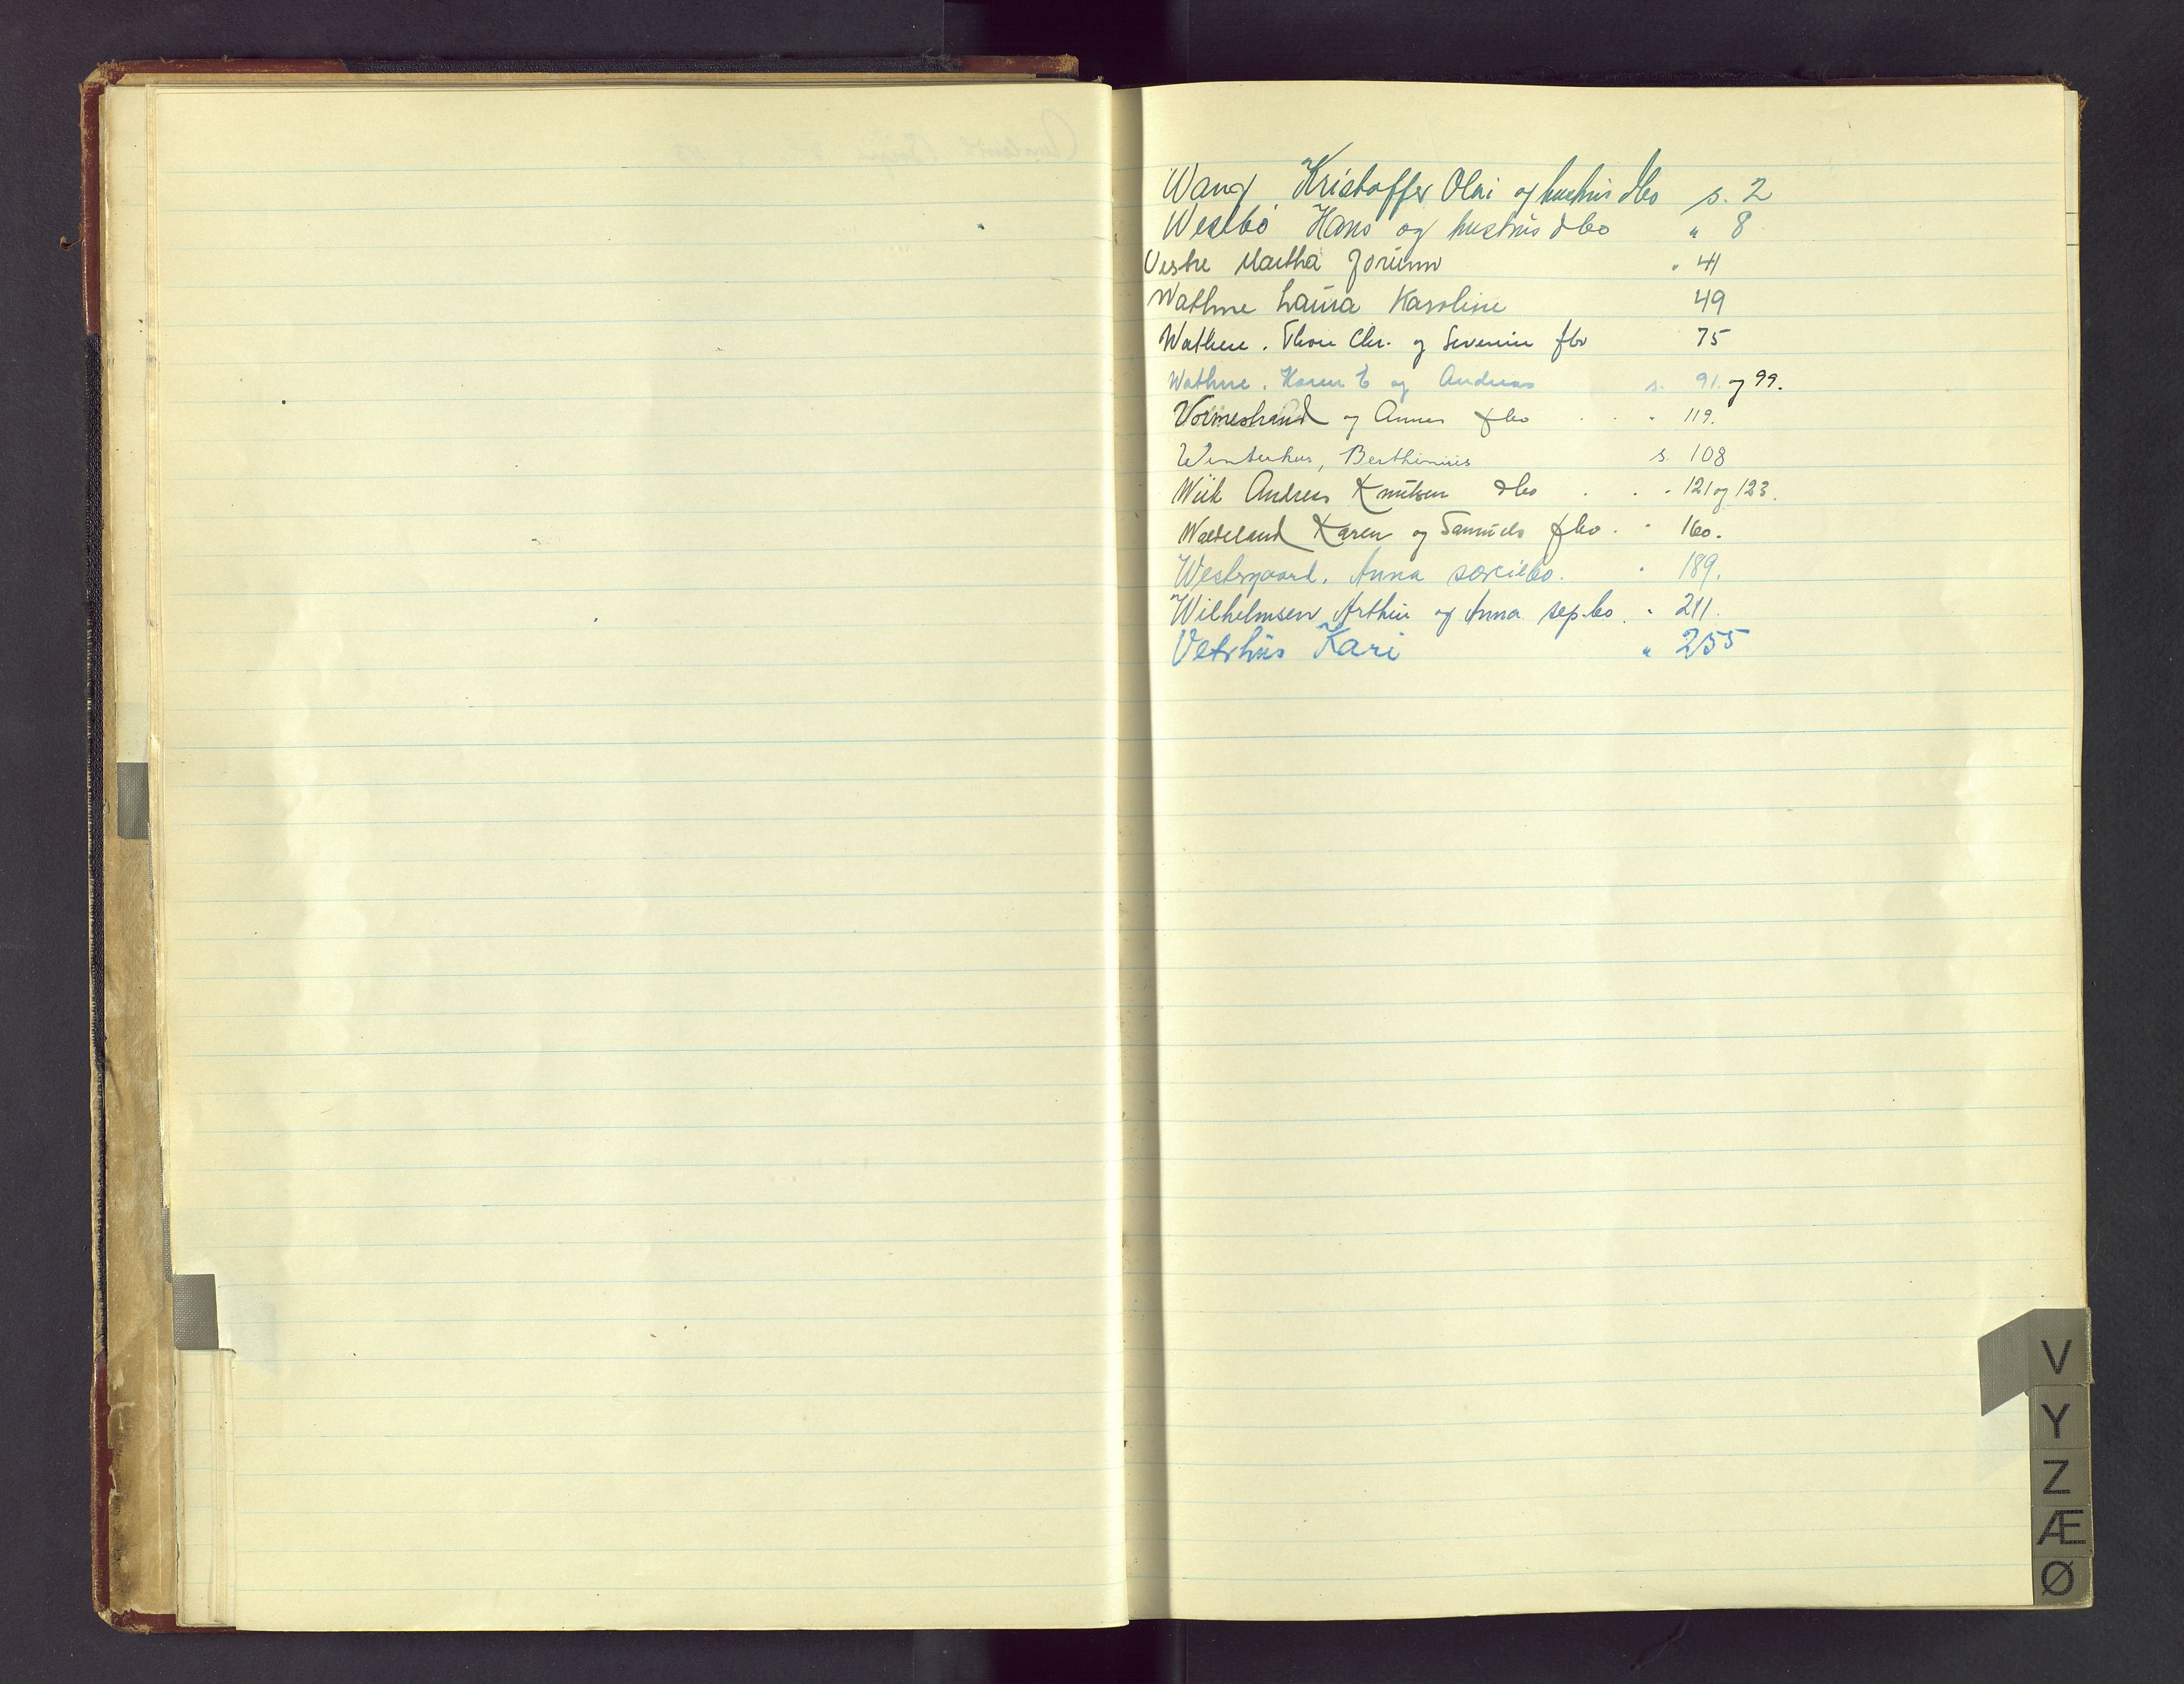 Wang, Kristoffer Olai og hustrus dbo s. 2
Westbø Hans og hustrus dbo " 8
Vestre Martha Jorunn " 41
Wathne Laura Karoline 49
Wathne. Thou Chr. og Severin fbo 75
Wathne. Karen E og Andreas s. 91. og 99.
Vormestrand og Annes fbo . . " 119.
Winterhus, Berthinius s. 108
Wiik Andreas Knutsen dbo . . " 121 og 123.
Wadeland Karen og Samuels fbo. " 160.
Westergaard, Anna særeiebo. " 189.
Wilhelmsen, Arthur og Anna sep.bo. " 211.
Vetrhus Kari " 255
V
Y
Z
Æ
Ø